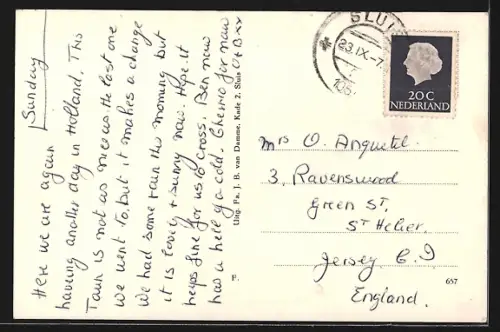 Sunday
Here we are again
having another day in Holland. This
Town is not as nice as the last one
we went to, but it makes a change
We had some rain this morning but
it is lovely & sunny now. Hope it
keeps fine for us to cross. Ben now
has a hell of a cold. Cheerio for now
xx
Uitg. Fa. J. B. van Damme, Kade 2, Sluis
F.
SLUIS
23.IX.-7
20 C
NEDERLAND
Mrs O. Anquetil
3, Ravenswood
Green St,
St Helier,
Jersey C. I
England.
657